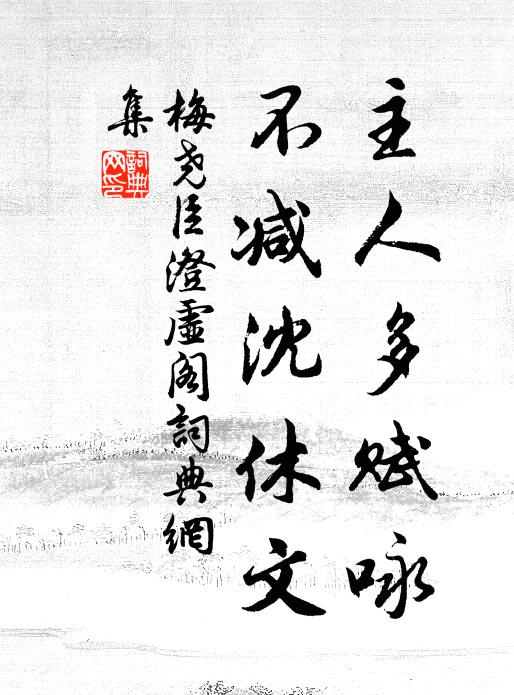 主人多赋咏
不减沈休文
梅尧臣澄虚阁词典網
集
詞典
网印